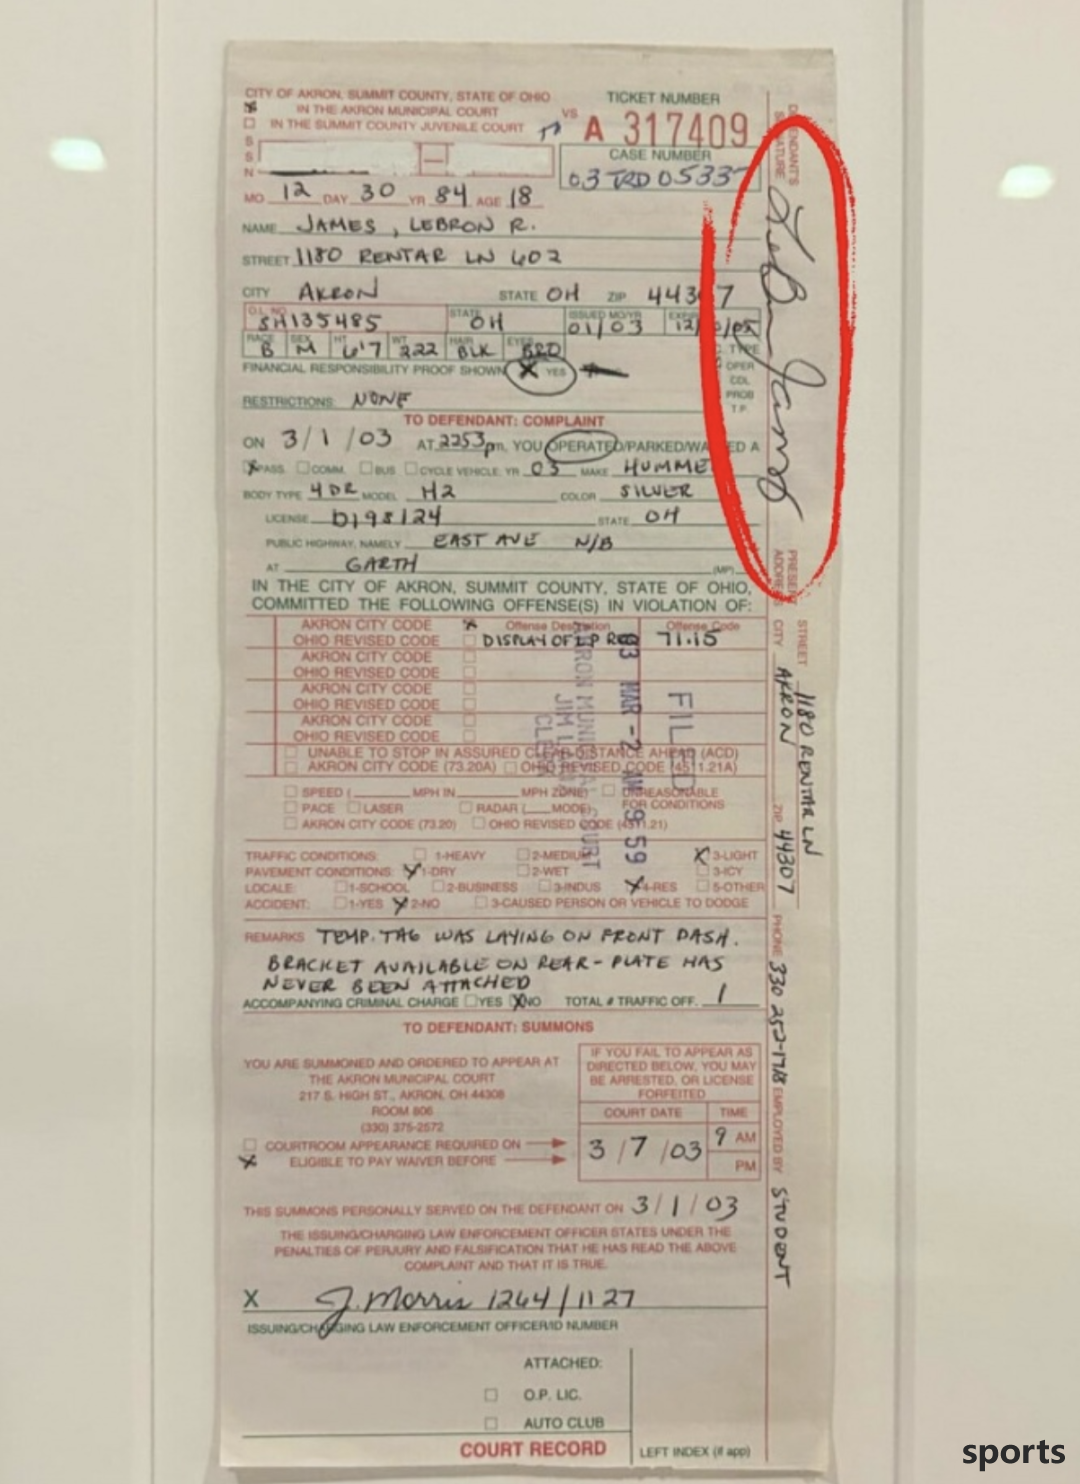 CITY OF AKRON, SUMMIT COUNTY, STATE OF OHIO
IN THE AKRON MUNICIPAL COURT
IN THE SUMMIT COUNTY JUVENILE COURT
VS
TICKET NUMBER
A 317409
CASE NUMBER
03 TRD 05335
SSN
MO 12 DAY 30 YR 84 AGE 18
NAME JAMES, LEBRON R.
STREET 1180 RENTAR LN 602
CITY AKRON STATE OH ZIP 44307
O.L. NO. SH135485 STATE OH ISSUED MO/YR 01/03
RACE B SEX M HT 6'7 WT 222 HAIR BLK EYES BRO
FINANCIAL RESPONSIBILITY PROOF SHOWN X YES
TYPE
OPER
CDL
PROB
T.P.
RESTRICTIONS: NONE
TO DEFENDANT: COMPLAINT
ON 3/1/03 AT 2253 pm, YOU OPERATED/PARKED/ A
X PASS. COMM. BUS CYCLE VEHICLE: YR 03 MAKE HUMME
BODY TYPE 4DR MODEL H2 COLOR SILVER
LICENSE D198124 STATE OH
PUBLIC HIGHWAY, NAMELY EAST AVE N/B
AT GARTH (MP)
IN THE CITY OF AKRON, SUMMIT COUNTY, STATE OF OHIO,
COMMITTED THE FOLLOWING OFFENSE(S) IN VIOLATION OF:
AKRON CITY CODE X Offense Offense Code
OHIO REVISED CODE DISPLAY OF LP REG 71.15
AKRON CITY CODE
OHIO REVISED CODE
AKRON CITY CODE
OHIO REVISED CODE
AKRON CITY CODE
OHIO REVISED CODE
UNABLE TO STOP IN ASSURED CLEAR DISTANCE AHEAD (ACD)
AKRON CITY CODE (73.20A) OHIO REVISED CODE (4511.21A)
SPEED ( MPH IN MPH ZONE) UNREASONABLE
PACE LASER RADAR ( MODE) FOR CONDITIONS
AKRON CITY CODE (73.20) OHIO REVISED CODE (4511.21)
FILED
03 MAR -2 AM 9 59
AKRON MUNICIPAL COURT
JIM
CLERK
TRAFFIC CONDITIONS: 1-HEAVY 2-MEDIUM X 3-LIGHT
PAVEMENT CONDITIONS: X 1-DRY 2-WET 3-ICY
LOCALE: 1-SCHOOL 2-BUSINESS 3-INDUS X 4-RES 5-OTHER
ACCIDENT: 1-YES X 2-NO 3-CAUSED PERSON OR VEHICLE TO DODGE
REMARKS TEMP. TAG WAS LAYING ON FRONT DASH.
BRACKET AVAILABLE ON REAR-PLATE HAS
NEVER BEEN ATTACHED
ACCOMPANYING CRIMINAL CHARGE YES X NO TOTAL # TRAFFIC OFF. 1
TO DEFENDANT: SUMMONS
YOU ARE SUMMONED AND ORDERED TO APPEAR AT
THE AKRON MUNICIPAL COURT
217 S. HIGH ST., AKRON, OH 44308
ROOM 806
(330) 375-2572
COURTROOM APPEARANCE REQUIRED ON
X ELIGIBLE TO PAY WAIVER BEFORE
IF YOU FAIL TO APPEAR AS
DIRECTED BELOW, YOU MAY
BE ARRESTED, OR LICENSE
FORFEITED
COURT DATE TIME
3/7/03 9 AM
PM
THIS SUMMONS PERSONALLY SERVED ON THE DEFENDANT ON 3/1/03
THE ISSUING/CHARGING LAW ENFORCEMENT OFFICER STATES UNDER THE
PENALTIES OF PERJURY AND FALSIFICATION THAT HE HAS READ THE ABOVE
COMPLAINT AND THAT IT IS TRUE.
X J. Morris 1264/1127
ISSUING/CHARGING LAW ENFORCEMENT OFFICER/ID NUMBER
ATTACHED:
O.P. LIC.
AUTO CLUB
COURT RECORD LEFT INDEX (if app)
DEFENDANT'S
SIGNATURE LeBron James
PRESENT
ADDRESS
STREET 1180 RENTAR LN
CITY AKRON ZIP 44307
PHONE 330 252-1718 EMPLOYED BY STUDENT
sports